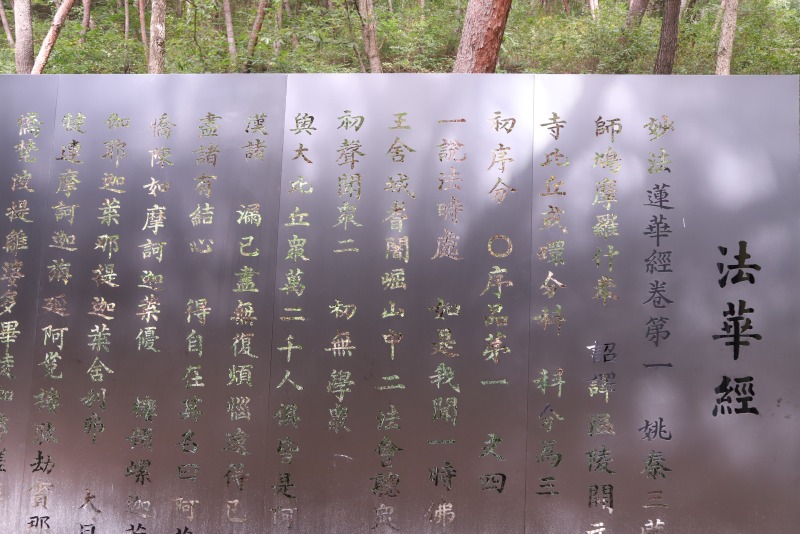 法華經
妙法蓮華經卷第一 姚秦三
師鳩摩羅什奉 詔譯 溫陵開元
寺比丘戒環分科 科分為三
初序分 〇序品第一 文四
一說法時處 如是我聞一時佛
王舍城耆闍崛山中 二法會聽衆
初聲聞衆二 初無學衆
與大比丘衆萬二千人俱皆是阿
漢諸 漏已盡無復煩惱逮得已
盡諸有結心 得自在其名曰阿
憍陳如摩訶迦葉優
伽耶迦葉那提迦葉舍利弗 大目
犍連摩訶迦旃延阿㝹樓馱劫賓那
憍梵波提離婆多畢陵伽